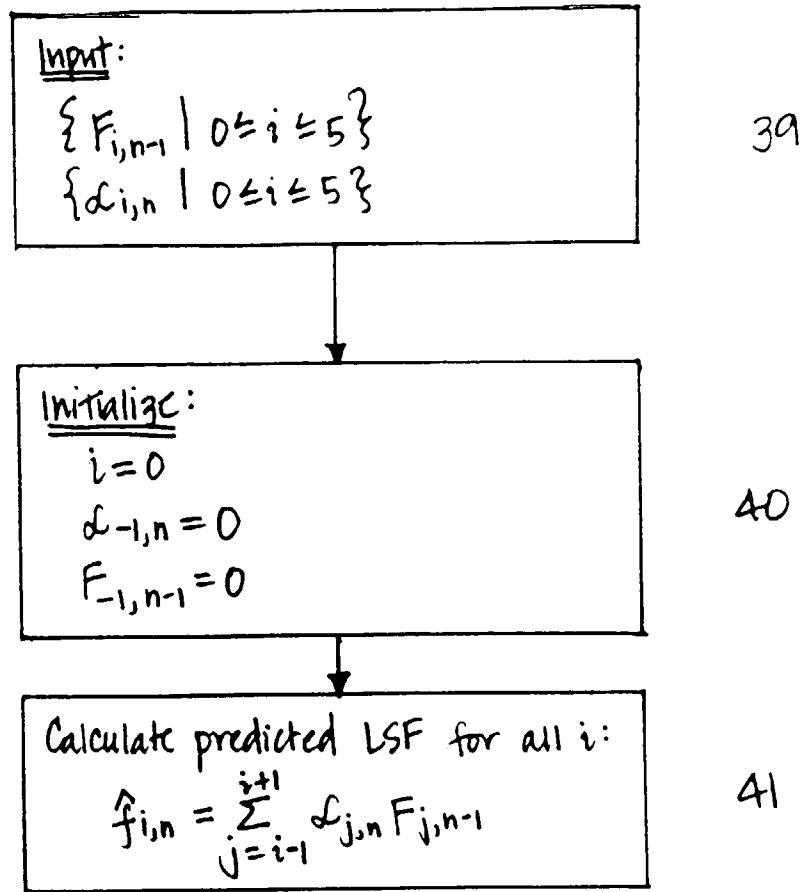 Input:
{F_{i,n-1} | 0≤i≤5}
{α_{i,n} | 0≤i≤5}
39
Initialize:
i=0
α_{-1,n}=0
F_{-1,n-1}=0
40
Calculate predicted LSF for all i:
f̂_{i,n} = Σ_{j=i-1}^{i+1} α_{j,n} F_{j,n-1}
41